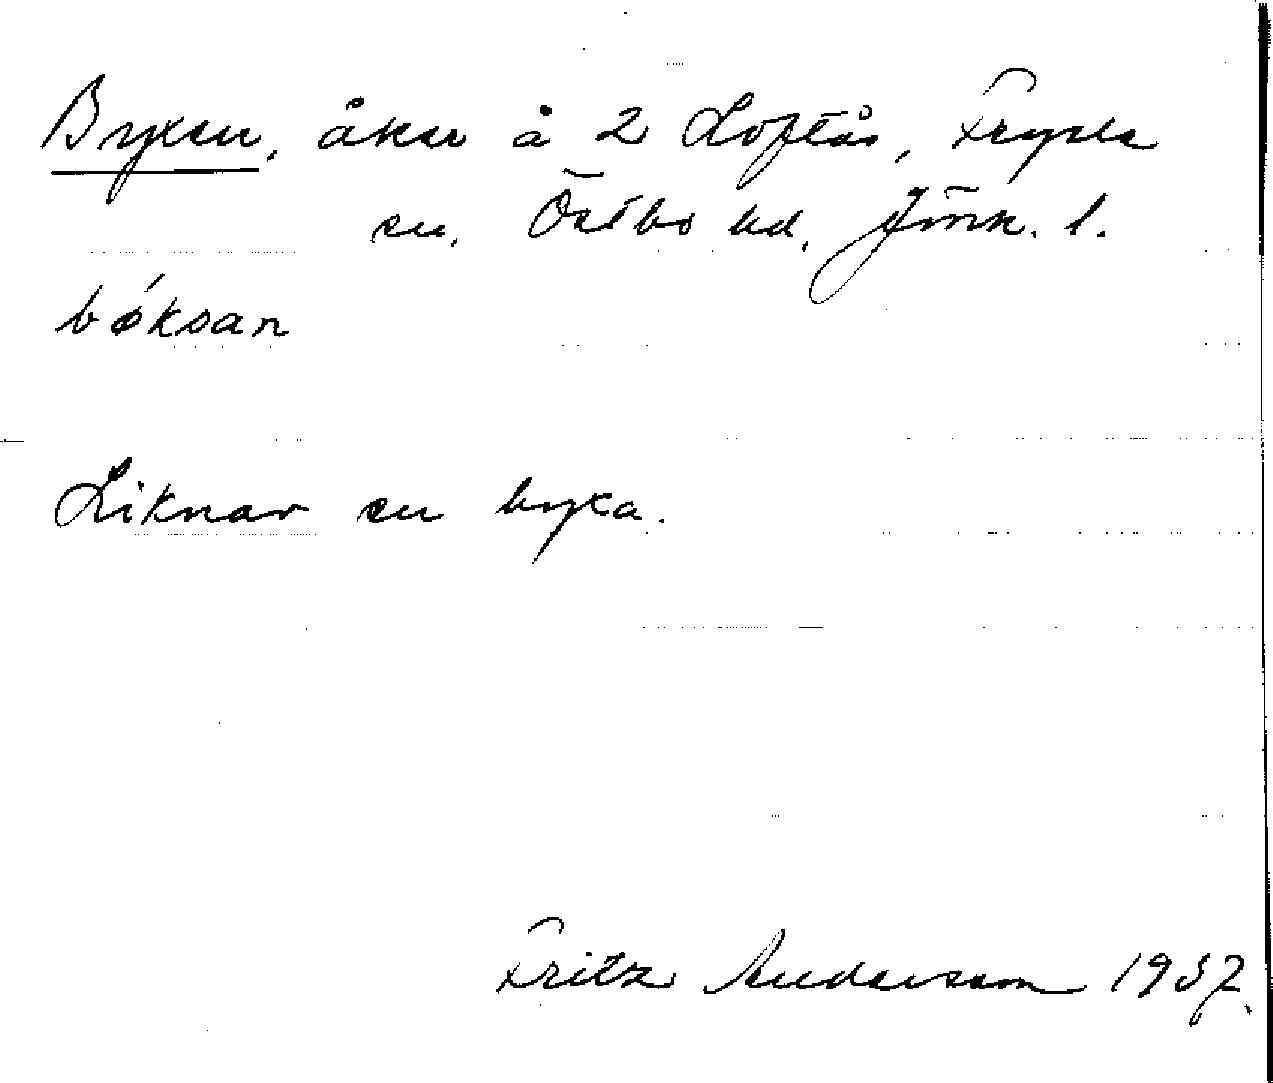 Byxan, åker å 2 Loftås, Fryele
sn, Östbo hd, Jönk. l.
bǿksan
Liknar en byxa.
Fritz Andersson 1937.